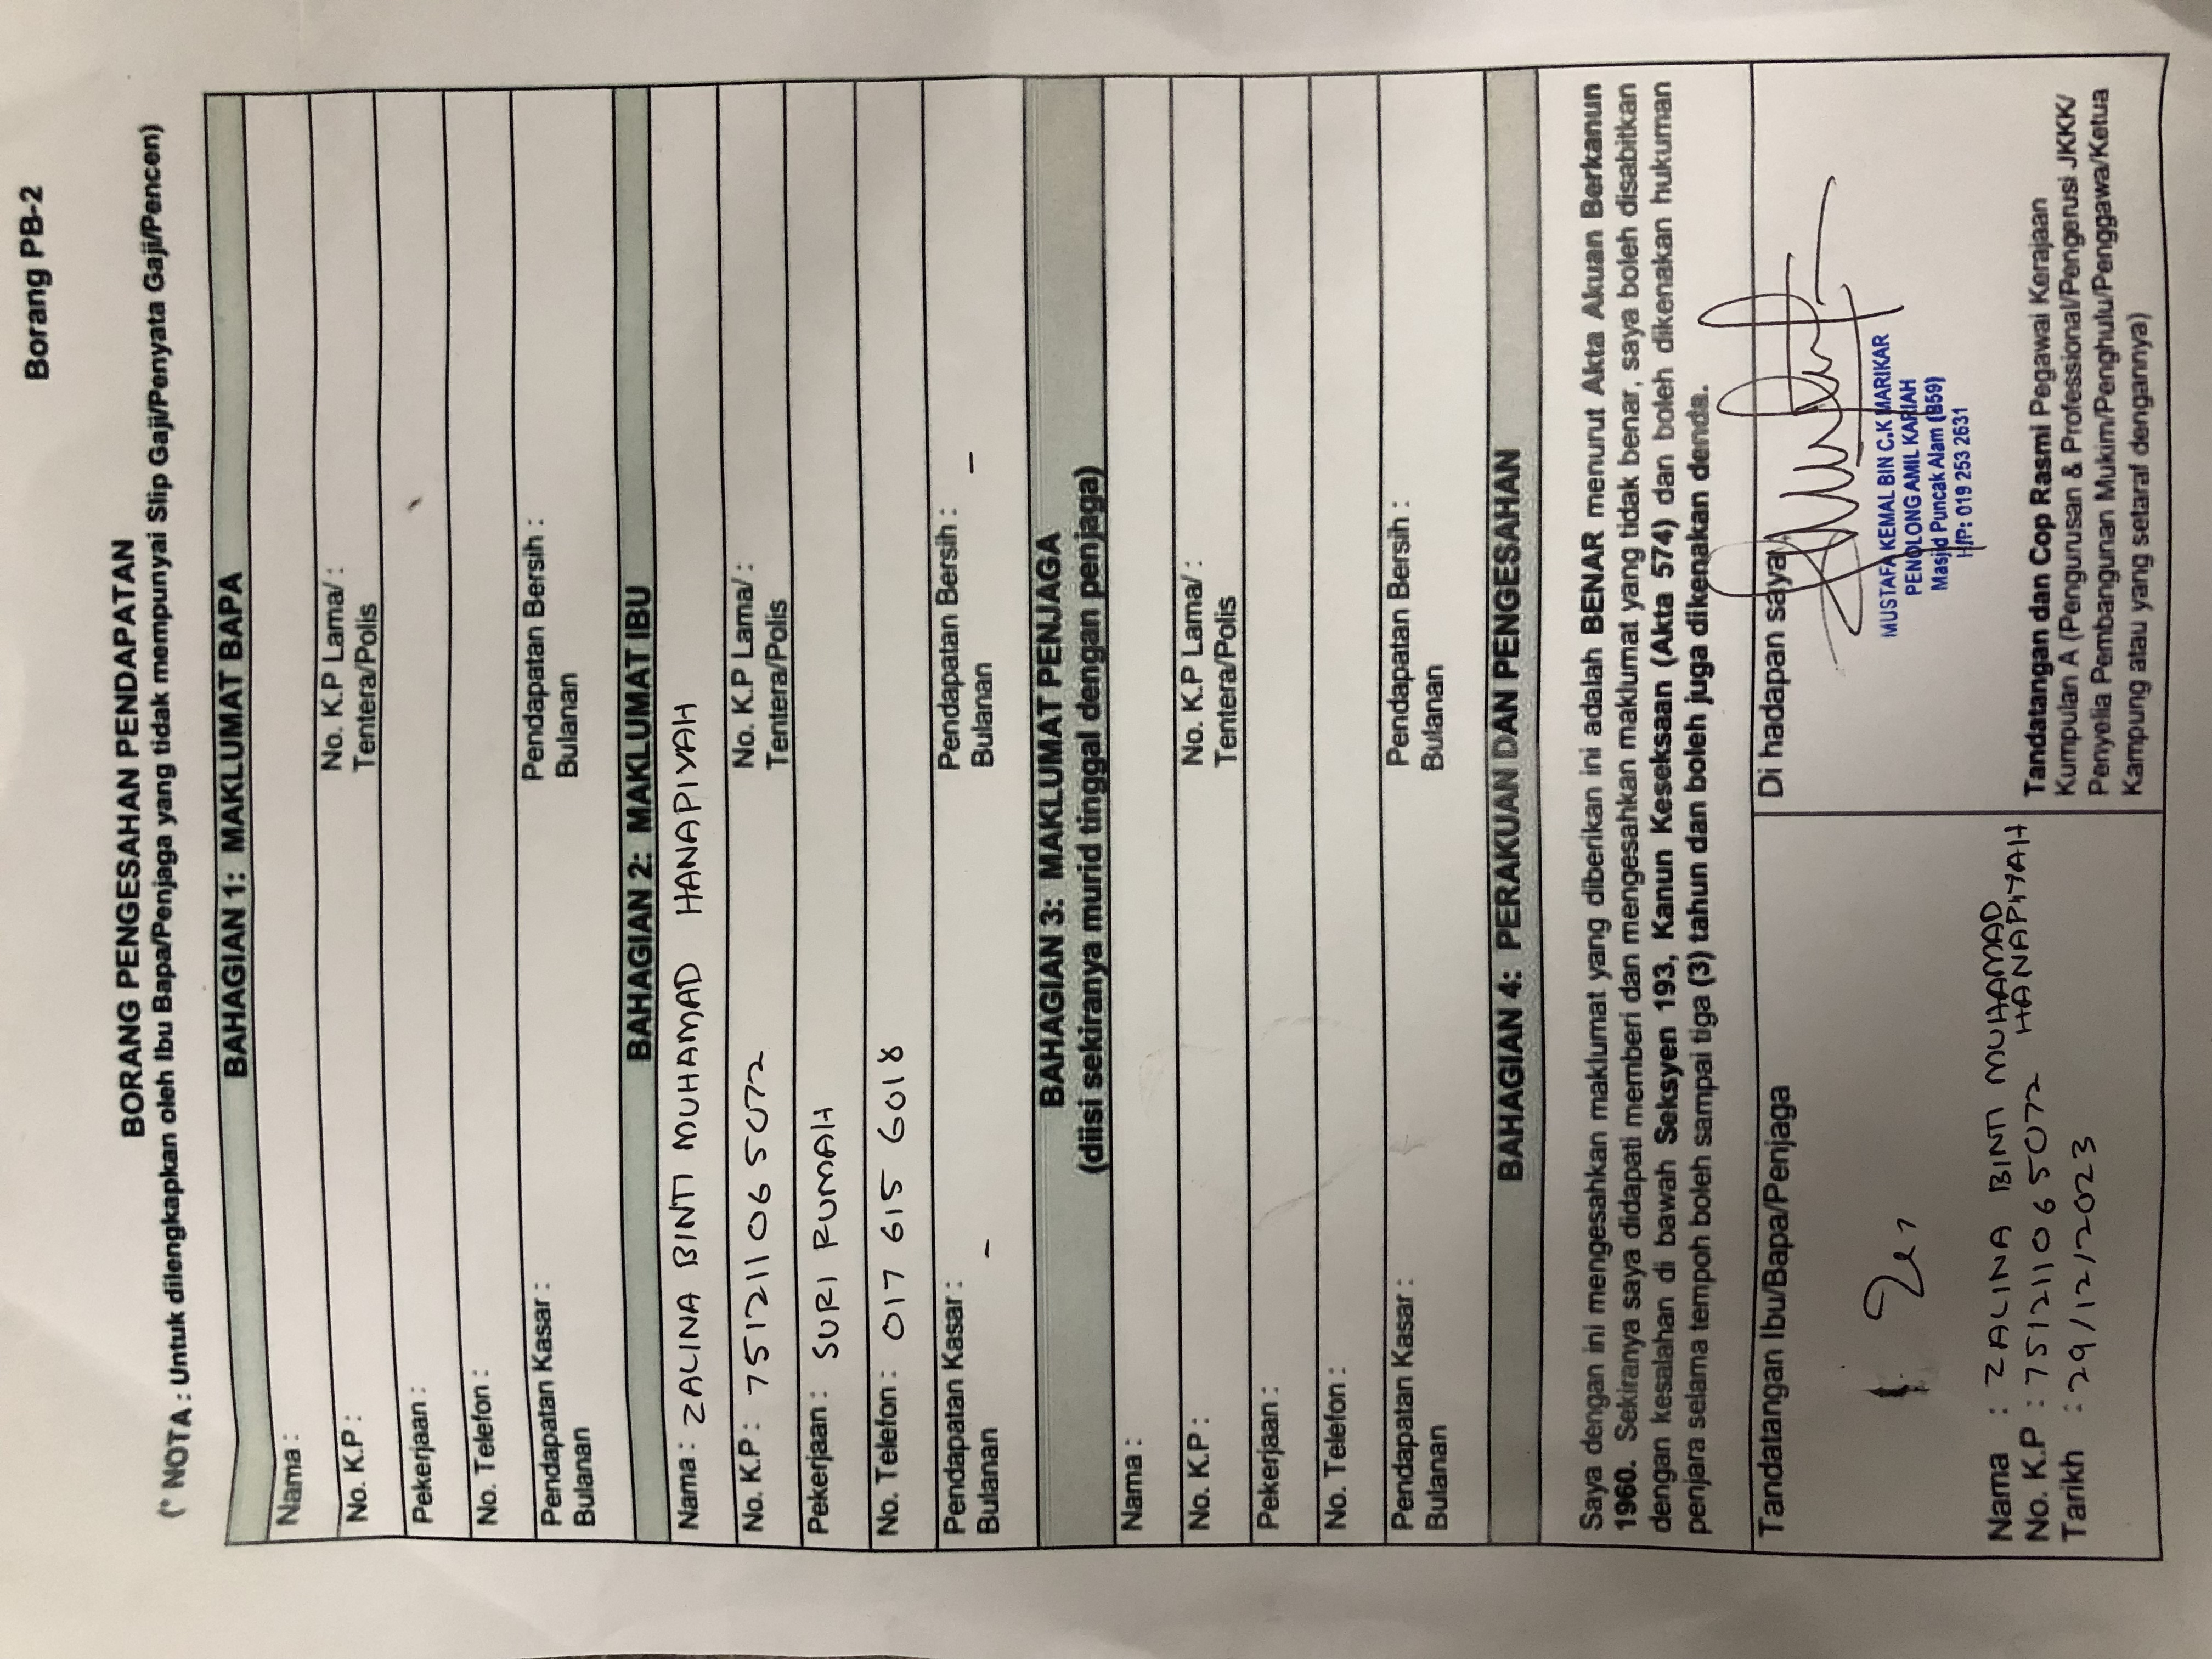 Borang PB-2
BORANG PENGESAHAN PENDAPATAN
(* NOTA : Untuk dilengkapkan oleh Ibu Bapa/Penjaga yang tidak mempunyai Slip Gaji/Penyata Gaji/Pencen)
BAHAGIAN 1: MAKLUMAT BAPA
Nama :
No. K.P : No. K.P Lama/ :
Tentera/Polis
Pekerjaan :
No. Telefon :
Pendapatan Kasar : Pendapatan Bersih :
Bulanan Bulanan
BAHAGIAN 2: MAKLUMAT IBU
Nama : ZALINA BINTI MUHAMAD HANAPIYAH
No. K.P : 751211065072 No. K.P Lama/ :
Tentera/Polis
Pekerjaan : SURI RUMAH
No. Telefon : 017 615 6018
Pendapatan Kasar : Pendapatan Bersih :
Bulanan - Bulanan -
BAHAGIAN 3: MAKLUMAT PENJAGA
(diisi sekiranya murid tinggal dengan penjaga)
Nama :
No. K.P : No. K.P Lama/ :
Tentera/Polis
Pekerjaan :
No. Telefon :
Pendapatan Kasar : Pendapatan Bersih :
Bulanan Bulanan
BAHAGIAN 4: PERAKUAN DAN PENGESAHAN
Saya dengan ini mengesahkan maklumat yang diberikan ini adalah BENAR menurut Akta Akuan Berkanun
1960. Sekiranya saya didapati memberi dan mengesahkan maklumat yang tidak benar, saya boleh disabitkan
dengan kesalahan di bawah Seksyen 193, Kanun Keseksaan (Akta 574) dan boleh dikenakan hukuman
penjara selama tempoh boleh sampai tiga (3) tahun dan boleh juga dikenakan denda.
Tandatangan Ibu/Bapa/Penjaga
Nama : ZALINA BINTI MUHAMAD
HANAPIYAH
No. K.P : 751211065072
Tarikh : 29/12/2023
Di hadapan saya
MUSTAFA KEMAL BIN C.K MARIKAR
PENOLONG AMIL KARIAH
Masjid Puncak Alam (B59)
H/P: 019 253 2631
Tandatangan dan Cop Rasmi Pegawai Kerajaan
Kumpulan A (Pengurusan & Professional/Pengerusi JKKK/
Penyelia Pembangunan Mukim/Penghulu/Penggawa/Ketua
Kampung atau yang setaraf dengannya)